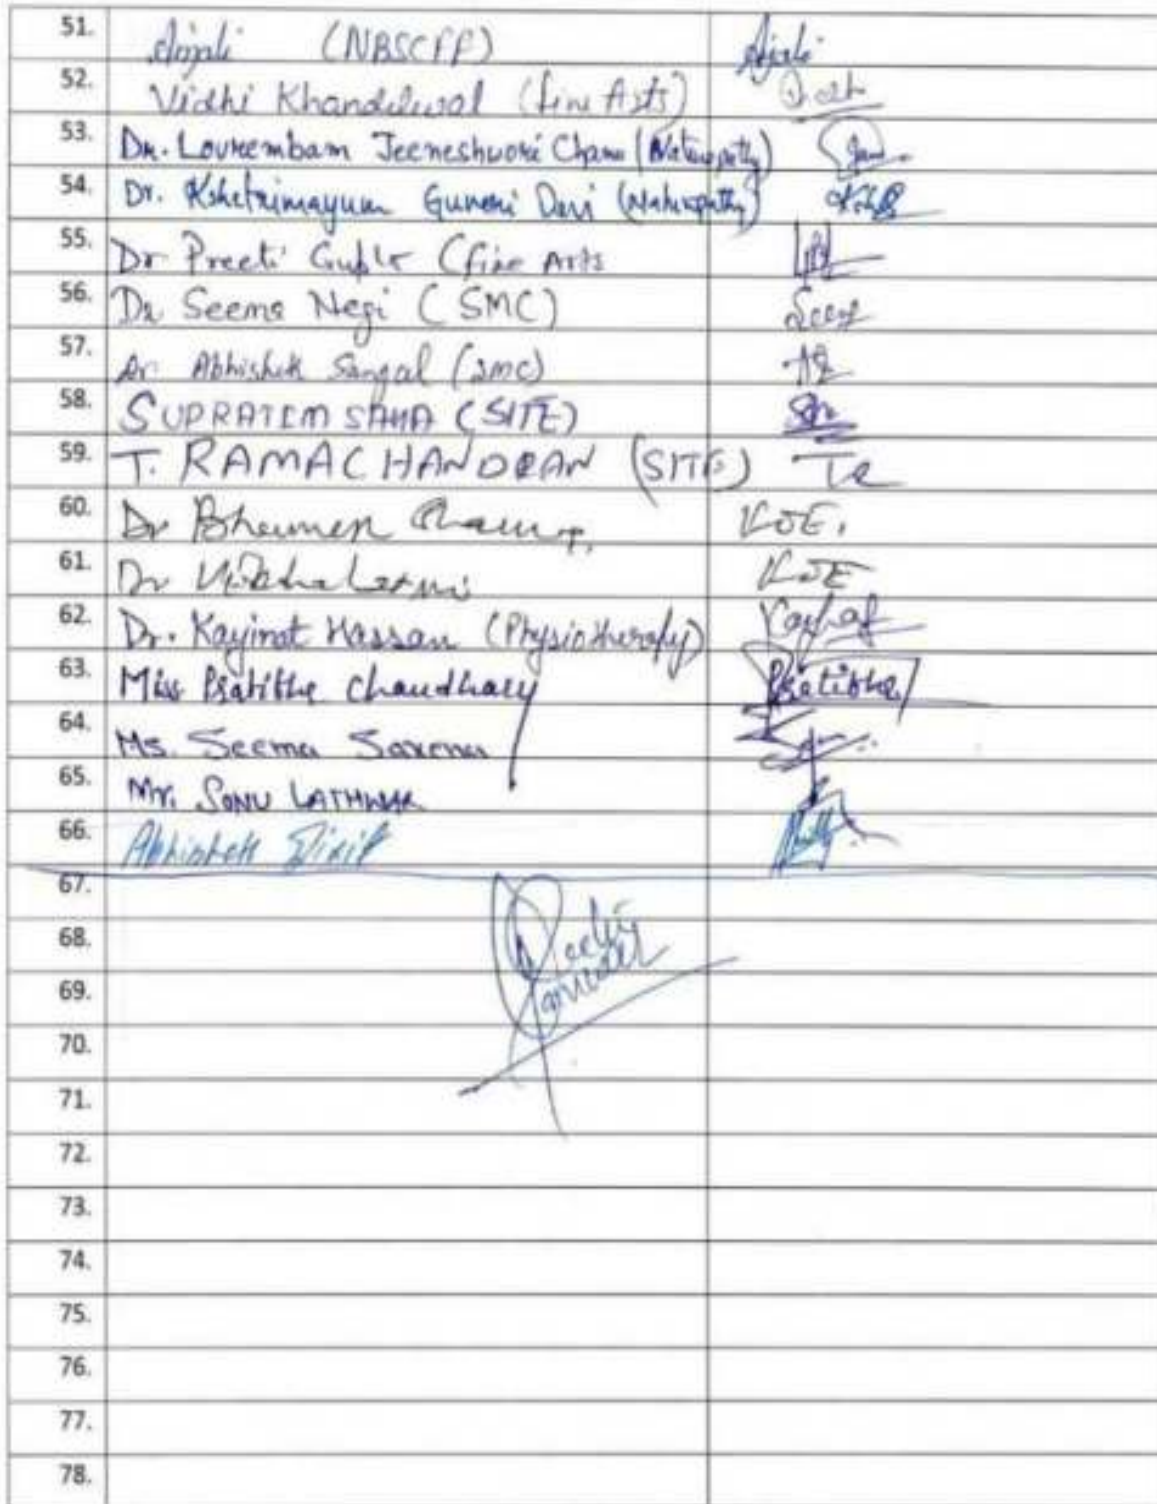 51. Anjali (NBSCFP) Anjali
52. Vidhi Khandelwal (fine Arts)
53. Dr. Lourembam Jeeneshwori Chanu (Naturopathy)
54. Dr. Kshetrimayum Gunomi Devi (Naturopathy)
55. Dr Preeti Gupta (fine Arts
56. Dr Seema Negi (SMC) Seema
57. Dr Abhishek Sangal (SMC)
58. SUPRATIM SAHA (SITE)
59. T. RAMACHANDRAN (SITE) TR
60. Dr KOE.
61. Dr KOE
62. Dr. Kayinat Hassan (Physiotherapy)
63. Miss Pratibha Chaudhary Pratibha
64. Ms. Seema Saxena
65. Mr. SONU LATHWAR
66. Abhishek Dixit
67.
68.
69.
70.
71.
72.
73.
74.
75.
76.
77.
78.